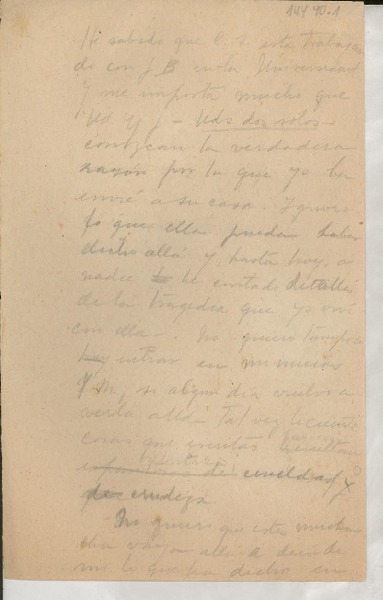 14490.1
He sabido que C. S. está trabajan
do con J B en la Universidad
y me importa mucho que
Ud y J - Uds dos solos -
conozcan la verdadera
razón por la que yo la
envié a su casa. Ignoro
lo que ella pueda haber
dicho allá y hasta hoy, a
nadie le he contado detalles
de la tragedia que yo viví
con ella. No quiero tampoco
hoy entrar en
si algún día vuelvo a
verla allá Tal vez le cuente
cosas que escritas resultan
de crueldad y
de crudeza
No quiero que esta mucha
cha vaya allá a decirle
lo que ha dicho en